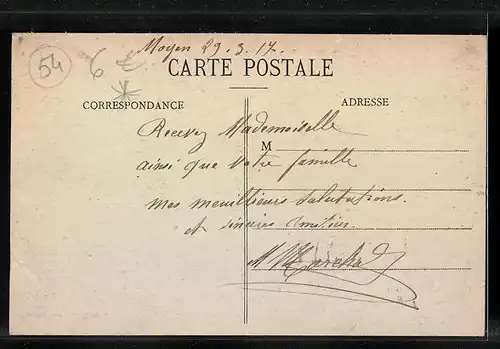 Moyen 29.3.17.
54
6 €
CARTE POSTALE
CORRESPONDANCE
ADRESSE
Recevez Mademoiselle
M
ainsi que votre famille
mes meuillieurs salutations.
et sincères amitiés.